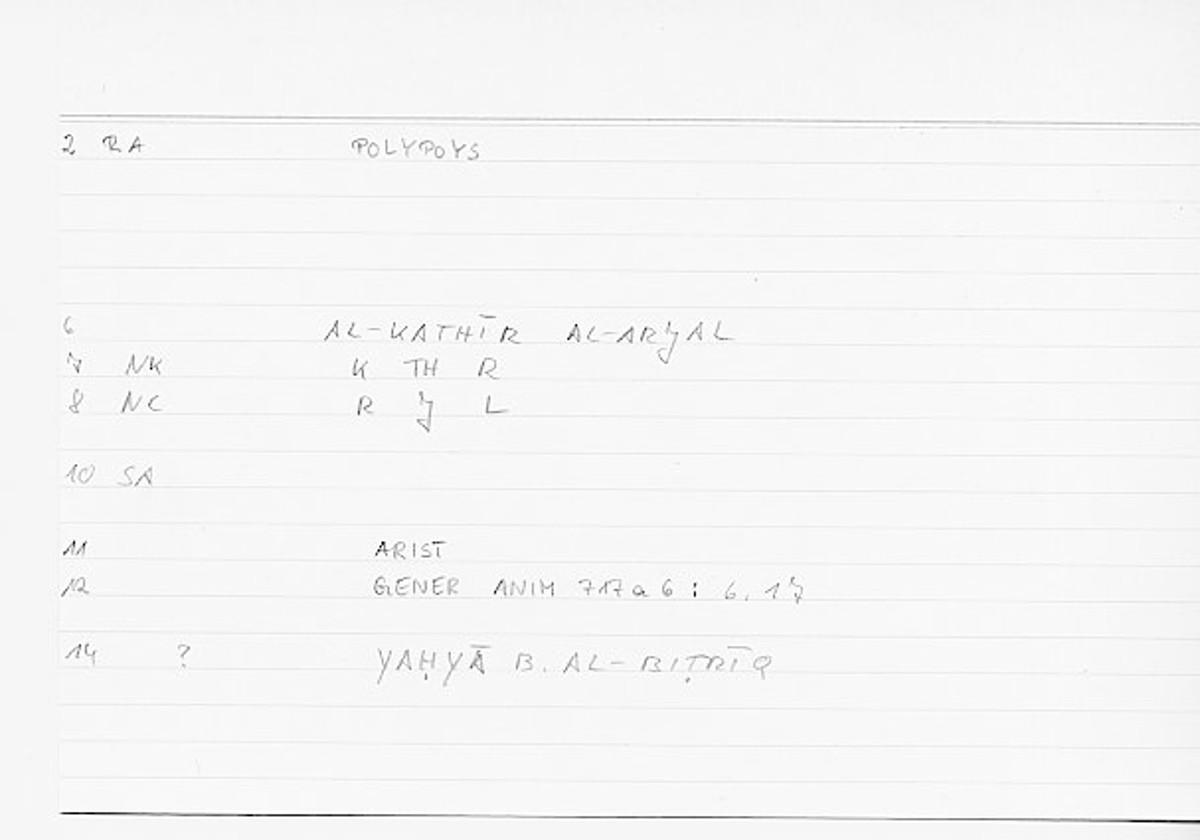 2 RA POLYPOYS
6 AL-KATHĪR AL-ARJAL
7 NK K TH R
8 NC R J L
10 SA
11 ARIST
12 GENER ANIM 717 a 6 : 6, 17
14 ? YAḤYĀ B. AL-BIṬRĪQ